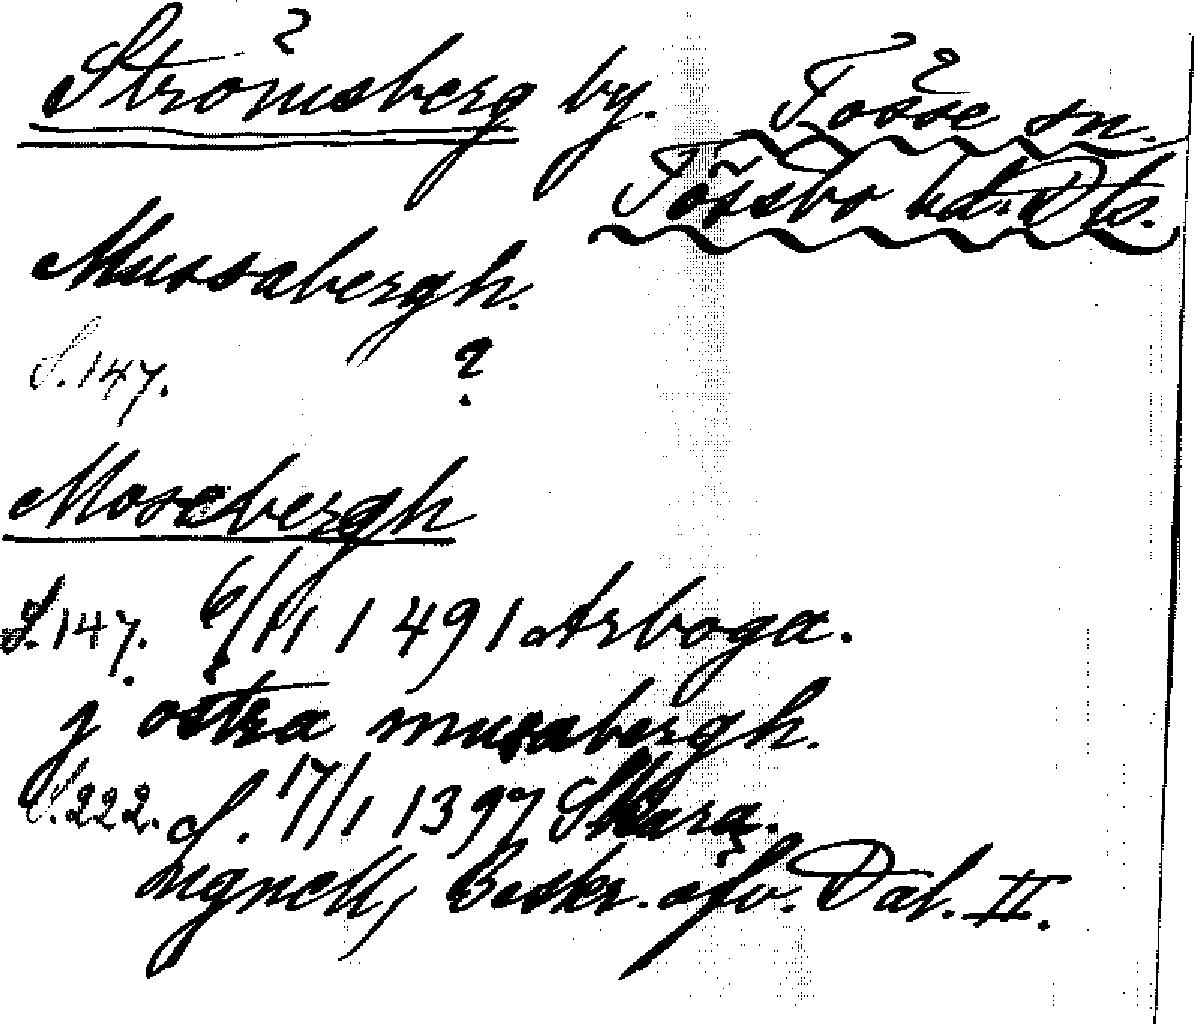 Strömsberg by. Tösse sn.
Tössbo hd. Dls.
Mussabergh.
S. 147. ?
Mosebergh
S. 147. 6/11 1491 Arboga.
j östra musabergh.
S. 222. d. 17/1 1397 Skara.
Lignell, Beskr. öfv. Dal. II.